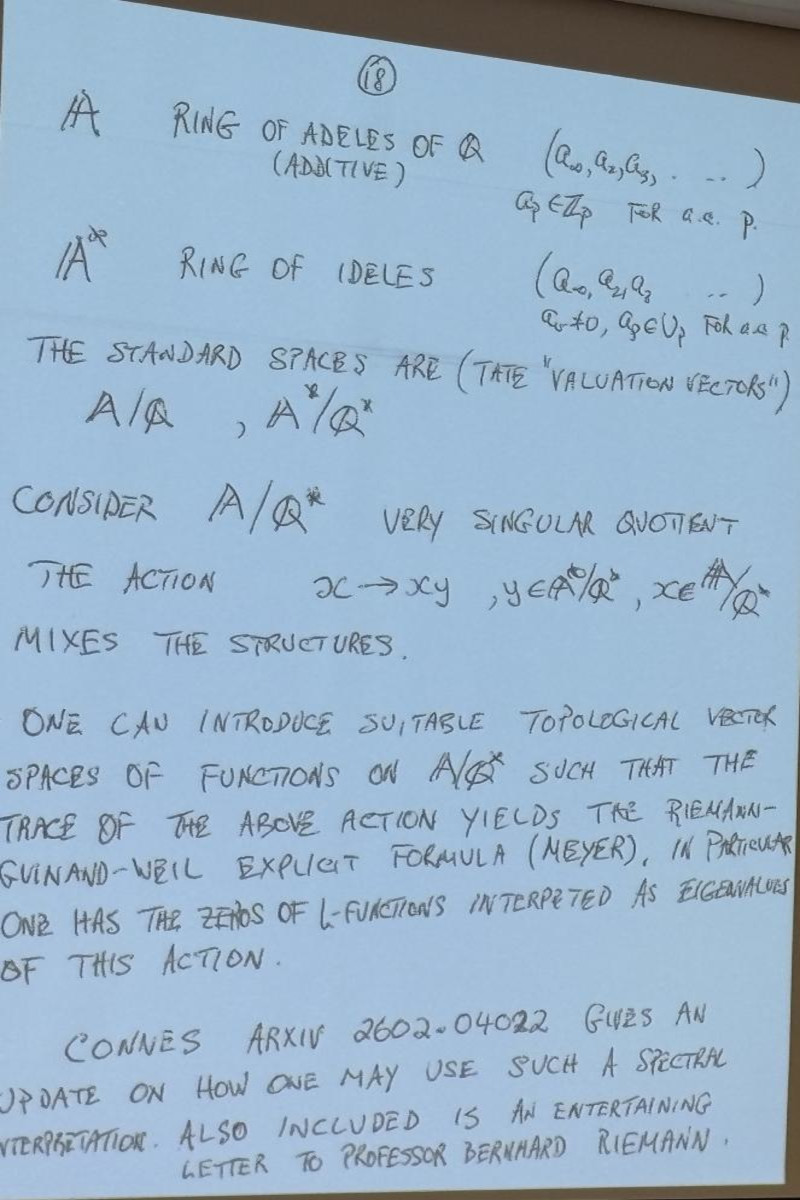 18
𝔸 RING OF ADELES OF ℚ (a∞, a2, a3, . . . )
(ADDITIVE) ap ∈ ℤp FOR a.a. p.
𝔸* RING OF IDELES (a∞, a2, a3 . . )
av ≠ 0, ap ∈ Up FOR a.a p
THE STANDARD SPACES ARE (TATE "VALUATION VECTORS")
𝔸/ℚ , 𝔸*/ℚ*
CONSIDER 𝔸/ℚ* VERY SINGULAR QUOTIENT
THE ACTION x → xy , y ∈ 𝔸*/ℚ* , x ∈ 𝔸/ℚ*
MIXES THE STRUCTURES.
ONE CAN INTRODUCE SUITABLE TOPOLOGICAL VECTOR
SPACES OF FUNCTIONS ON 𝔸/ℚ* SUCH THAT THE
TRACE OF THE ABOVE ACTION YIELDS THE RIEMANN-
GUINAND-WEIL EXPLICIT FORMULA (MEYER), IN PARTICULAR
ONE HAS THE ZEROS OF L-FUNCTIONS INTERPETED AS EIGENVALUES
OF THIS ACTION.
CONNES ARXIV 2602.04022 GIVES AN
UPDATE ON HOW ONE MAY USE SUCH A SPECTRAL
NTERPRETATION. ALSO INCLUDED IS AN ENTERTAINING
LETTER TO PROFESSOR BERNHARD RIEMANN.